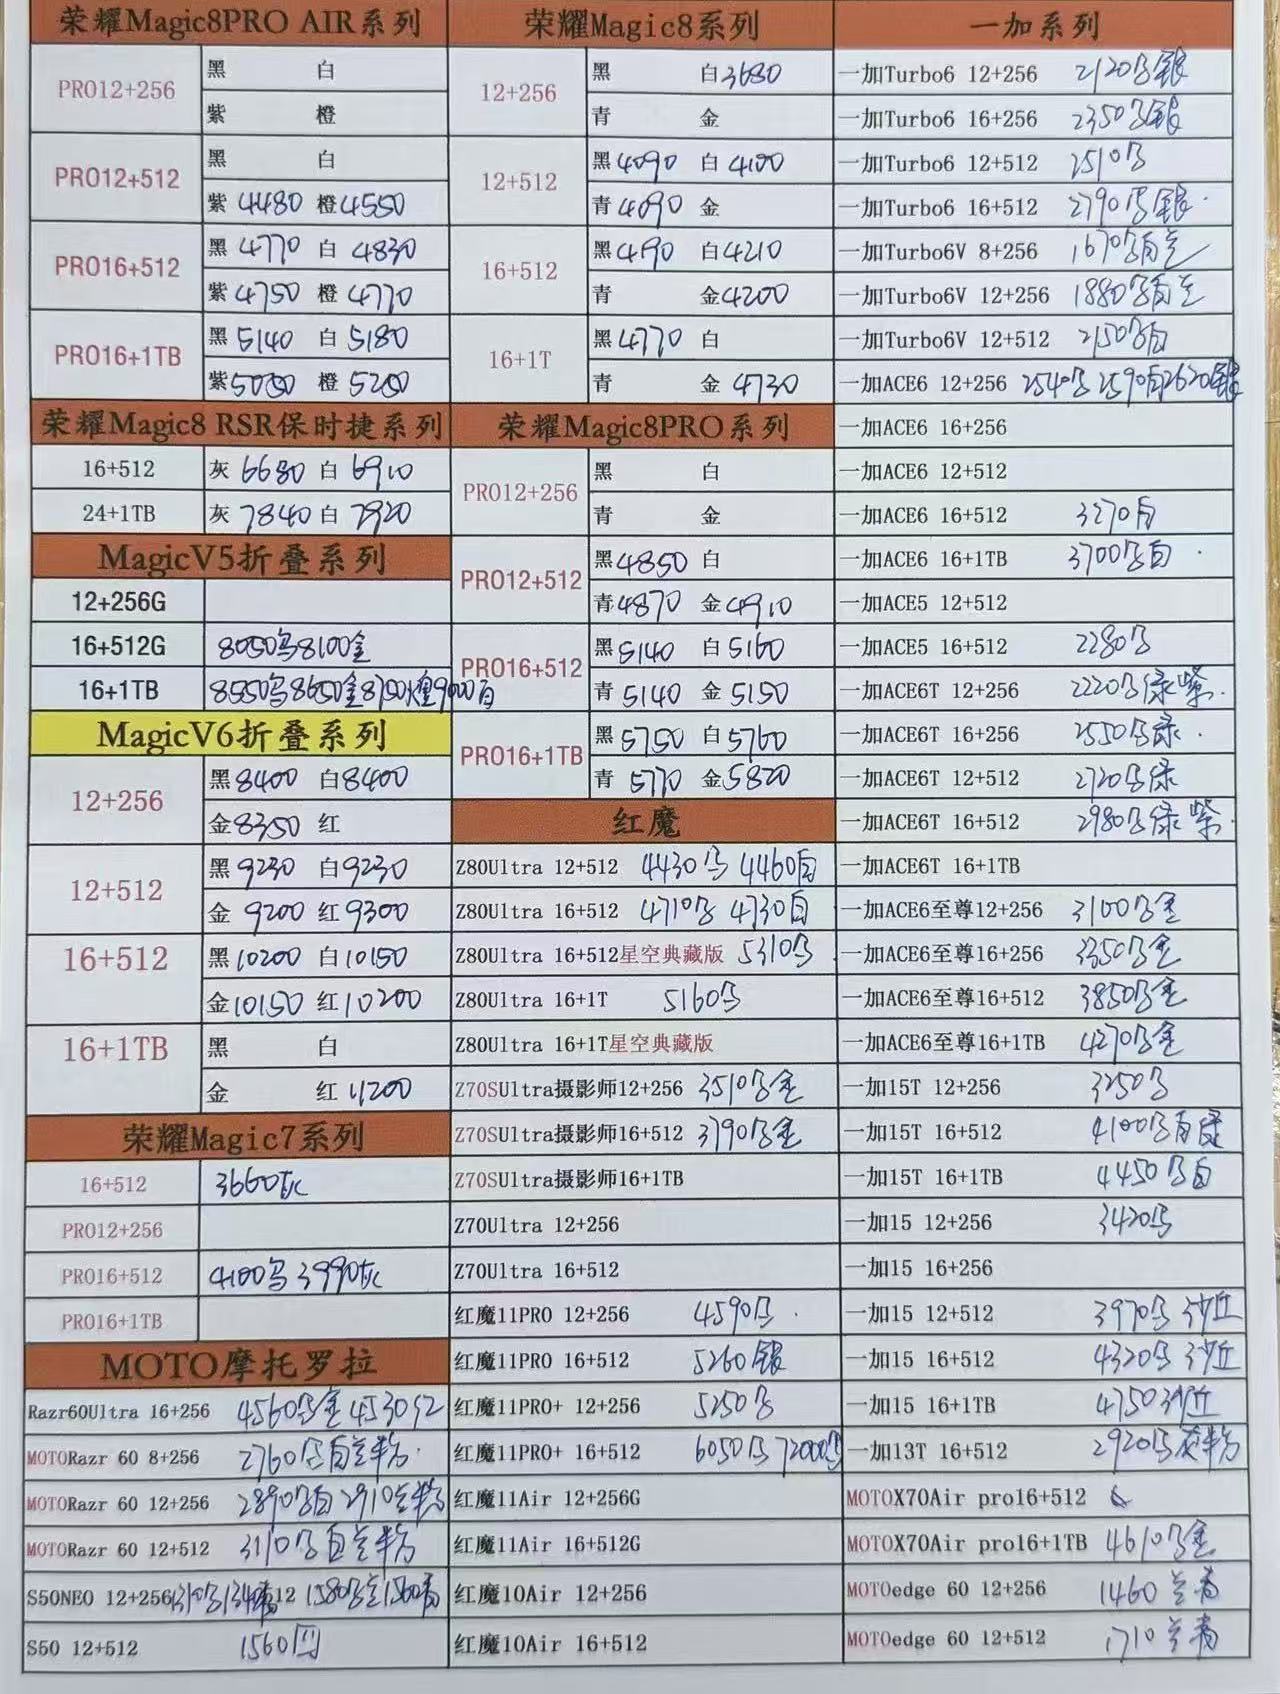 荣耀Magic8PRO AIR系列
PRO12+256
黑 白
紫 橙
PRO12+512
黑 白
紫 4480 橙 4550
PRO16+512
黑 4770 白 4830
紫 4750 橙 4770
PRO16+1TB
黑 5140 白 5180
紫 橙
荣耀Magic8 RSR保时捷系列
16+512 灰 6680 白 6910
24+1TB 灰 7840 白 7920
MagicV5折叠系列
12+256G
16+512G 8050乌8100金
16+1TB
MagicV6折叠系列
12+256
黑 8400 白 8400
金 8350 红
12+512
黑 9230 白 9230
金 9200 红 9300
16+512
黑 10200 白 10150
金 10150 红 10200
16+1TB
黑 白
金 红
荣耀Magic7系列
16+512 3660灰
PRO12+256
PRO16+512 4100乌 3990灰
PRO16+1TB
MOTO摩托罗拉
Razr60Ultra 16+256 4560乌金 4530红
MOTORazr 60 8+256 2760乌白兰粉
MOTORazr 60 12+256 2890乌白 2910兰粉
MOTORazr 60 12+512 3110乌白兰粉
S50NEO 12+256
S50 12+512 1560
荣耀Magic8系列
12+256
黑 白 3680
青 金
12+512
黑 4090 白 4100
青 4090 金
16+512
黑 4190 白 4210
青 金 4200
16+1T
黑 4770 白
青 金 4730
荣耀Magic8PRO系列
PRO12+256
黑 白
青 金
PRO12+512
黑 4850 白
青 4870 金 4910
PRO16+512
黑 5140 白 5160
青 5140 金 5150
PRO16+1TB
黑 5750 白 5760
青 5770 金 5820
红魔
Z80Ultra 12+512 4430乌 4460白
Z80Ultra 16+512 4710乌 4730白
Z80Ultra 16+512星空典藏版 5310乌
Z80Ultra 16+1T 5160乌
Z80Ultra 16+1T星空典藏版
Z70SUltra摄影师12+256 3510乌金
Z70SUltra摄影师16+512 3790乌金
Z70SUltra摄影师16+1TB
Z70Ultra 12+256
Z70Ultra 16+512
红魔11PRO 12+256 4590乌
红魔11PRO 16+512 5260银
红魔11PRO+ 12+256 5250乌
红魔11PRO+ 16+512 6050乌
红魔11Air 12+256G
红魔11Air 16+512G
红魔10Air 12+256
红魔10Air 16+512
一加系列
一加Turbo6 12+256 2120乌银
一加Turbo6 16+256 2350乌银
一加Turbo6 12+512 2510乌
一加Turbo6 16+512 2790乌银
一加Turbo6V 8+256 1670乌白兰
一加Turbo6V 12+256 1880乌白兰
一加Turbo6V 12+512 2150乌白
一加ACE6 12+256 2540乌 2590白 2620银
一加ACE6 16+256
一加ACE6 12+512
一加ACE6 16+512 3270白
一加ACE6 16+1TB 3700乌白
一加ACE5 12+512
一加ACE5 16+512 2280乌
一加ACE6T 12+256 2220乌绿紫
一加ACE6T 16+256 2550乌绿
一加ACE6T 12+512 2720乌绿
一加ACE6T 16+512 2980乌绿紫
一加ACE6T 16+1TB
一加ACE6至尊12+256 3100乌金
一加ACE6至尊16+256 3350乌金
一加ACE6至尊16+512 3850乌金
一加ACE6至尊16+1TB 4270乌金
一加15T 12+256 3250乌
一加15T 16+512 4100乌白绿
一加15T 16+1TB 4450乌白
一加15 12+256 3420乌
一加15 16+256
一加15 12+512 3970乌 沙丘
一加15 16+512 4320乌 沙丘
一加15 16+1TB 4750沙丘
一加13T 16+512 2920乌灰粉
MOTOX70Air pro16+512
MOTOX70Air pro16+1TB 4610乌金
MOTOedge 60 12+256 1460 兰青
MOTOedge 60 12+512 1710 兰青